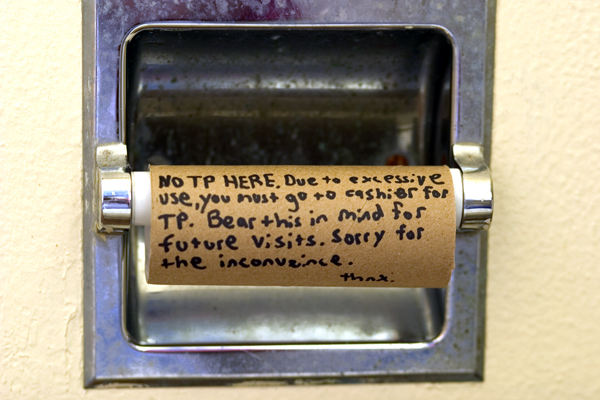 NO TP HERE. Due to excessive
use, you must go to cashier for
TP. Bear this in mind for
future visits. Sorry for
the inconveince.
thnx.